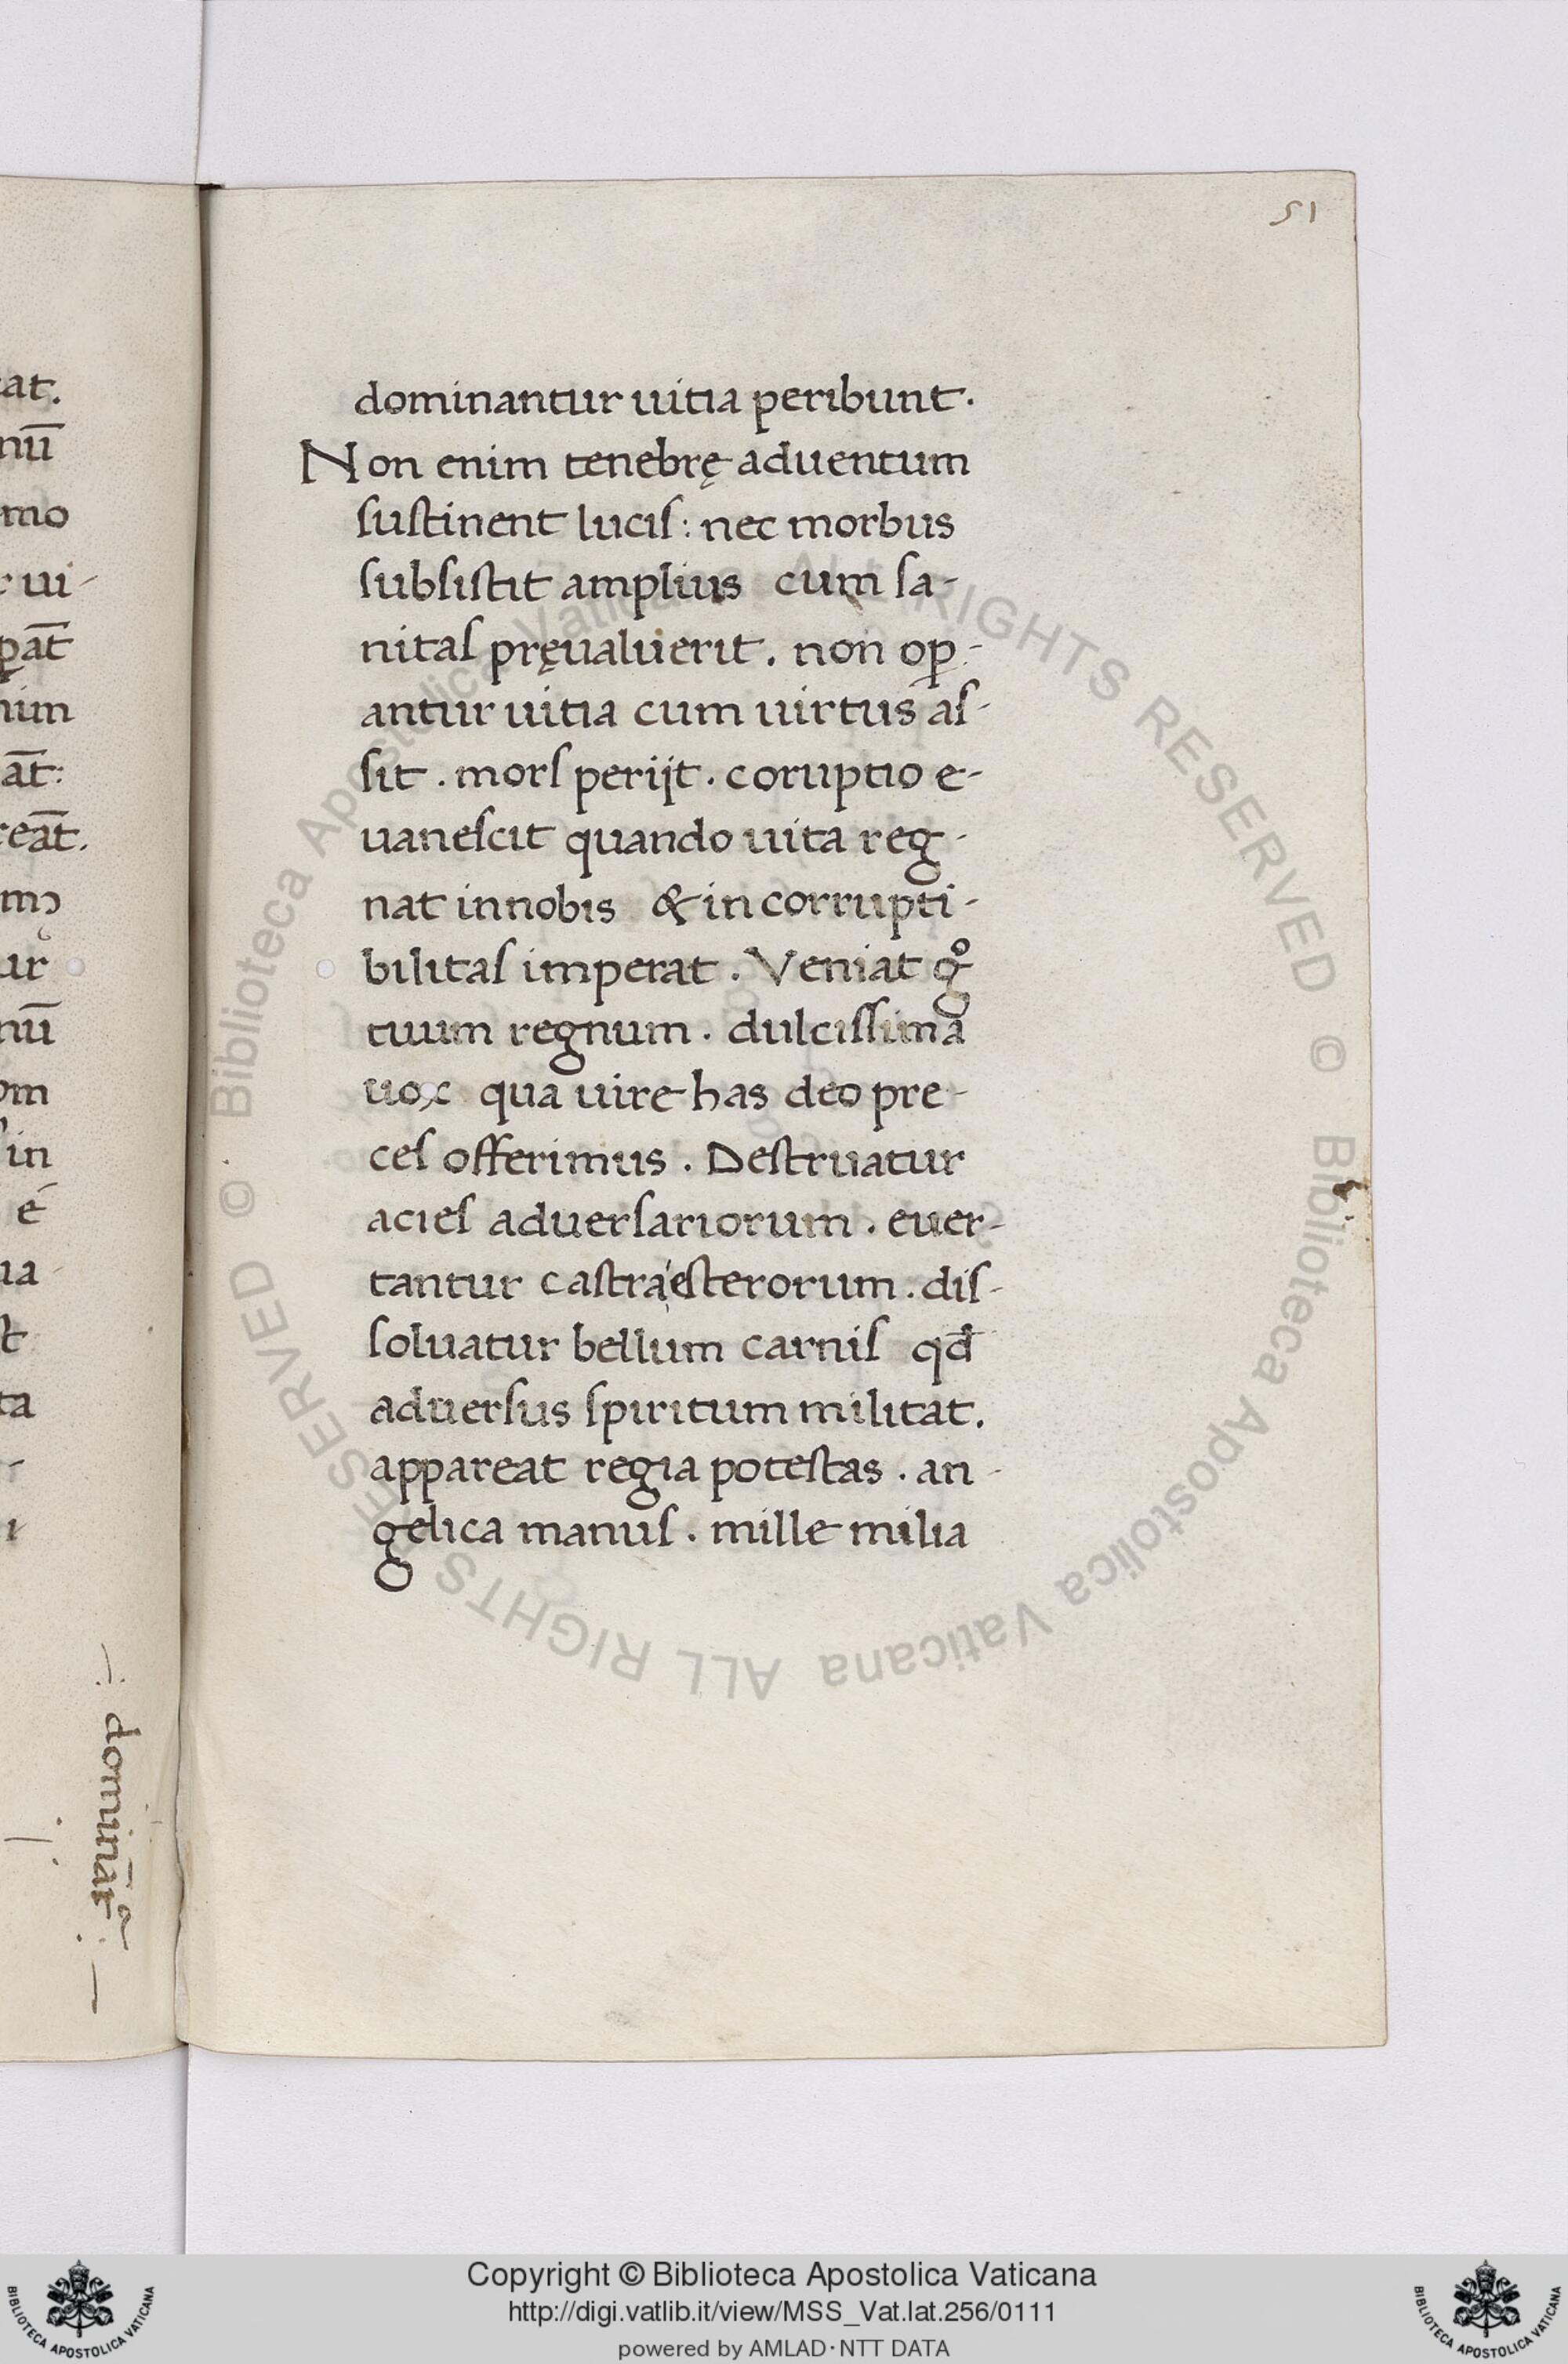 51
dominantur uitia peribunt.
Non enim tenebrę aduentum
ſuſtinent luciſ: nec morbus
ſubſiſtit amplius cum ſa-
nitaſ pręualuerit. non oꝑ-
antur uitia cum uirtus aſ-
ſit. morſ perijt. coruptio e-
uaneſcit quando uita reg-
nat in nobis & in corrupti-
bilitaſ imperat. Veniat gͦ
tuum regnum. dulciſſima
uox qua uire has deo pre-
ceſ offerimus. Deſtruatur
acieſ aduerſariorum. euer-
tantur caſtra eſterorum. diſ-
ſoluatur bellum carniſ qđ
aduerſus ſpiritum militat.
appareat regia poteſtas. an-
gelica manuſ. mille milia
at.
nū
mo
ui-
ꝑāt
nim
āt:
reāt.
ur
nū
om
in
é
ua
ſt
ta
i
Copyright © Biblioteca Apostolica Vaticana
http://digi.vatlib.it/view/MSS_Vat.lat.256/0111
powered by AMLAD·NTT DATA
BIBLIOTECA APOSTOLICA VATICANA
BIBLIOTECA APOSTOLICA VATICANA
© Biblioteca Apostolica Vaticana ALL RIGHTS RESERVED © Biblioteca Apostolica Vaticana ALL RIGHTS RESERVED